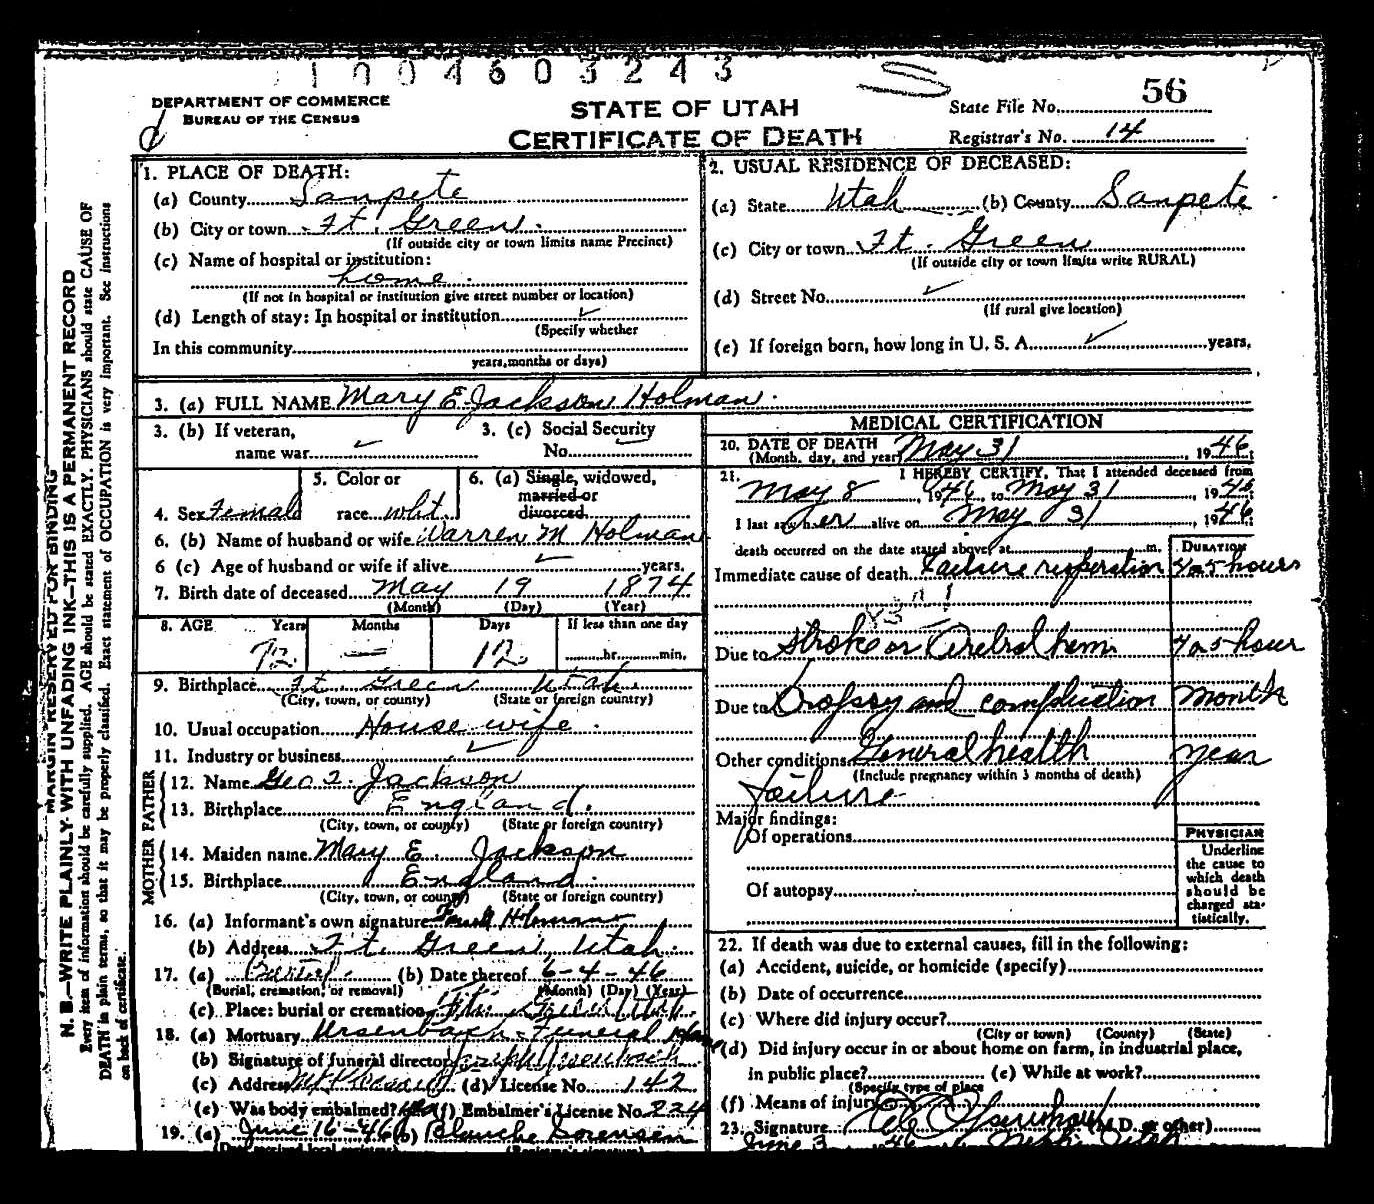 1004603243
DEPARTMENT OF COMMERCE
BUREAU OF THE CENSUS
STATE OF UTAH
CERTIFICATE OF DEATH
State File No. 56
Registrar's No. 14
MARGIN RESERVED FOR BINDING
N. B.—WRITE PLAINLY WITH UNFADING INK—THIS IS A PERMANENT RECORD
Every item of information should be carefully supplied. AGE should be stated EXACTLY. PHYSICIANS should state CAUSE OF
DEATH in plain terms, so that it may be properly classified. Exact statement of OCCUPATION is very important. See instructions
on back of certificate.
1. PLACE OF DEATH:
(a) County Sanpete
(b) City or town Ft. Green
(If outside city or town limits name Precinct)
(c) Name of hospital or institution:
home
(If not in hospital or institution give street number or location)
(d) Length of stay: In hospital or institution ✓
(Specify whether
In this community
years, months or days)
2. USUAL RESIDENCE OF DECEASED:
(a) State Utah (b) County Sanpete
(c) City or town Ft. Green
(If outside city or town limits write RURAL)
(d) Street No. ✓
(If rural give location)
(e) If foreign born, how long in U. S. A. ✓ years.
3. (a) FULL NAME Mary E Jackson Holman
3. (b) If veteran,
name war ✓
3. (c) Social Security
No.
4. Sex Female
5. Color or
race whit
6. (a) Single, widowed,
married or
divorced
6. (b) Name of husband or wife Warren M Holman
6 (c) Age of husband or wife if alive ✓ years.
7. Birth date of deceased May 19 1874
(Month) (Day) (Year)
8. AGE Years Months Days If less than one day
72 — 12 hr. min.
9. Birthplace Ft. Green Utah
(City, town, or county) (State or foreign country)
10. Usual occupation House wife
11. Industry or business ✓
FATHER
12. Name Geo T. Jackson
13. Birthplace England
(City, town, or county) (State or foreign country)
MOTHER
14. Maiden name Mary E. Jackson
15. Birthplace England
(City, town, or county) (State or foreign country)
16. (a) Informant's own signature Holman
(b) Address Ft. Green, Utah
17. (a) Burial (b) Date thereof 6-4-46
(Burial, cremation, or removal) (Month) (Day) (Year)
(c) Place: burial or cremation Ft. Green Utah
18. (a) Mortuary Ursenbach Funeral Home
(b) Signature of funeral director Joseph Ursenbach
(c) Address Mt Pleasant (d) License No. 142
(e) Was body embalmed? (f) Embalmer's License No. 224
19. (a) June 16-46 (b) Blanche Sorensen
MEDICAL CERTIFICATION
20. DATE OF DEATH May 31, 1946
(Month, day, and year)
21. I HEREBY CERTIFY, That I attended deceased from
May 8, 1946, to May 31, 1946
I last saw her alive on May 31, 1946
death occurred on the date stated above, at m.
DURATION
Immediate cause of death Failure resperation 4 or 5 hours
Due to stroke or Cerebral hem 4 or 5 hour
Due to Dropsy and complication month
Other conditions General health year
(Include pregnancy within 3 months of death)
failure
Major findings:
Of operations
Of autopsy
PHYSICIAN
Underline
the cause to
which death
should be
charged sta-
tistically.
22. If death was due to external causes, fill in the following:
(a) Accident, suicide, or homicide (specify)
(b) Date of occurrence
(c) Where did injury occur?
(City or town) (County) (State)
(d) Did injury occur in or about home on farm, in industrial place,
in public place? (e) While at work?
(Specify type of place
(f) Means of injury
23. Signature (M.D. or other)
June 3 46 Utah